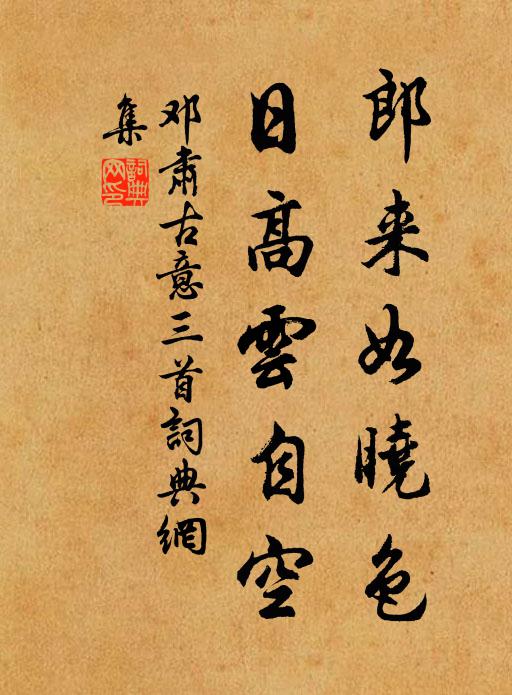 郎来如曉色
日高雲自空
邓肅古意三首詞典網
集
詞典
网印